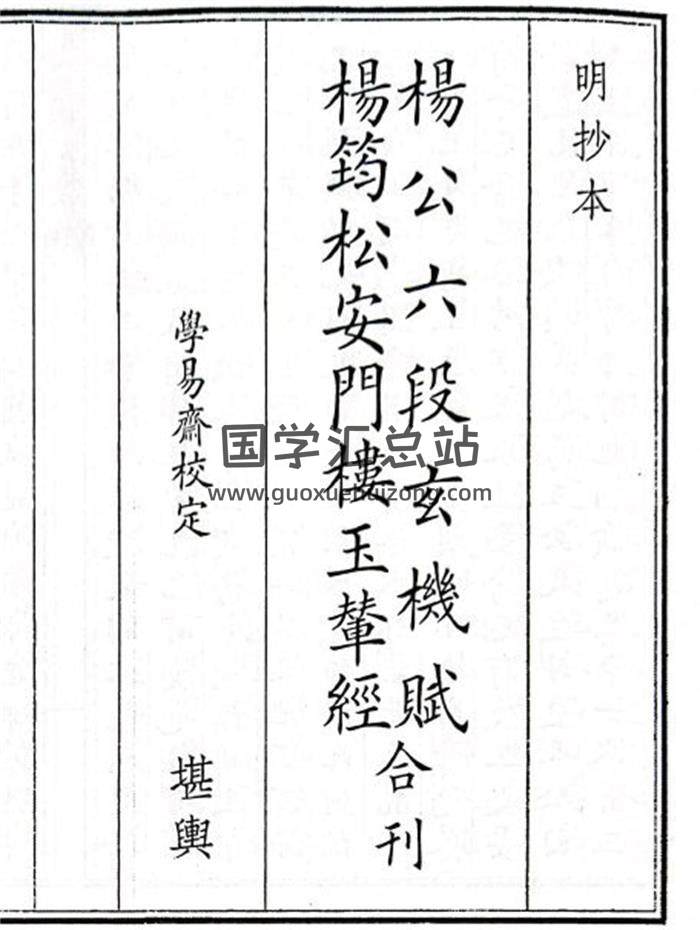 明抄本
楊公六段玄機賦
楊筠松安門樓玉輦經
合刊
學易齋校定 堪輿
国学汇总站
www.guoxuehuizong.com